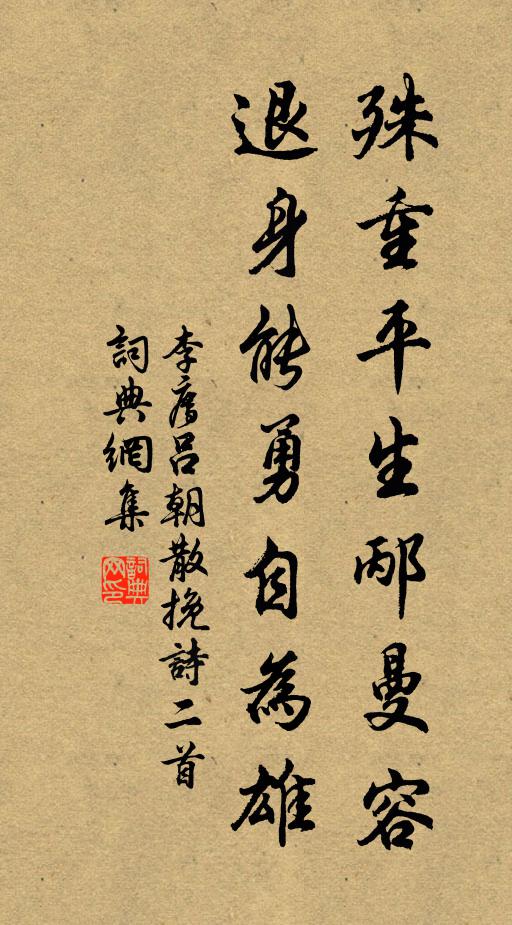 殊重平生邴曼容
退身能勇自為雄
李廌呂朝散挽詩二首
詞典網集
詞典
网印